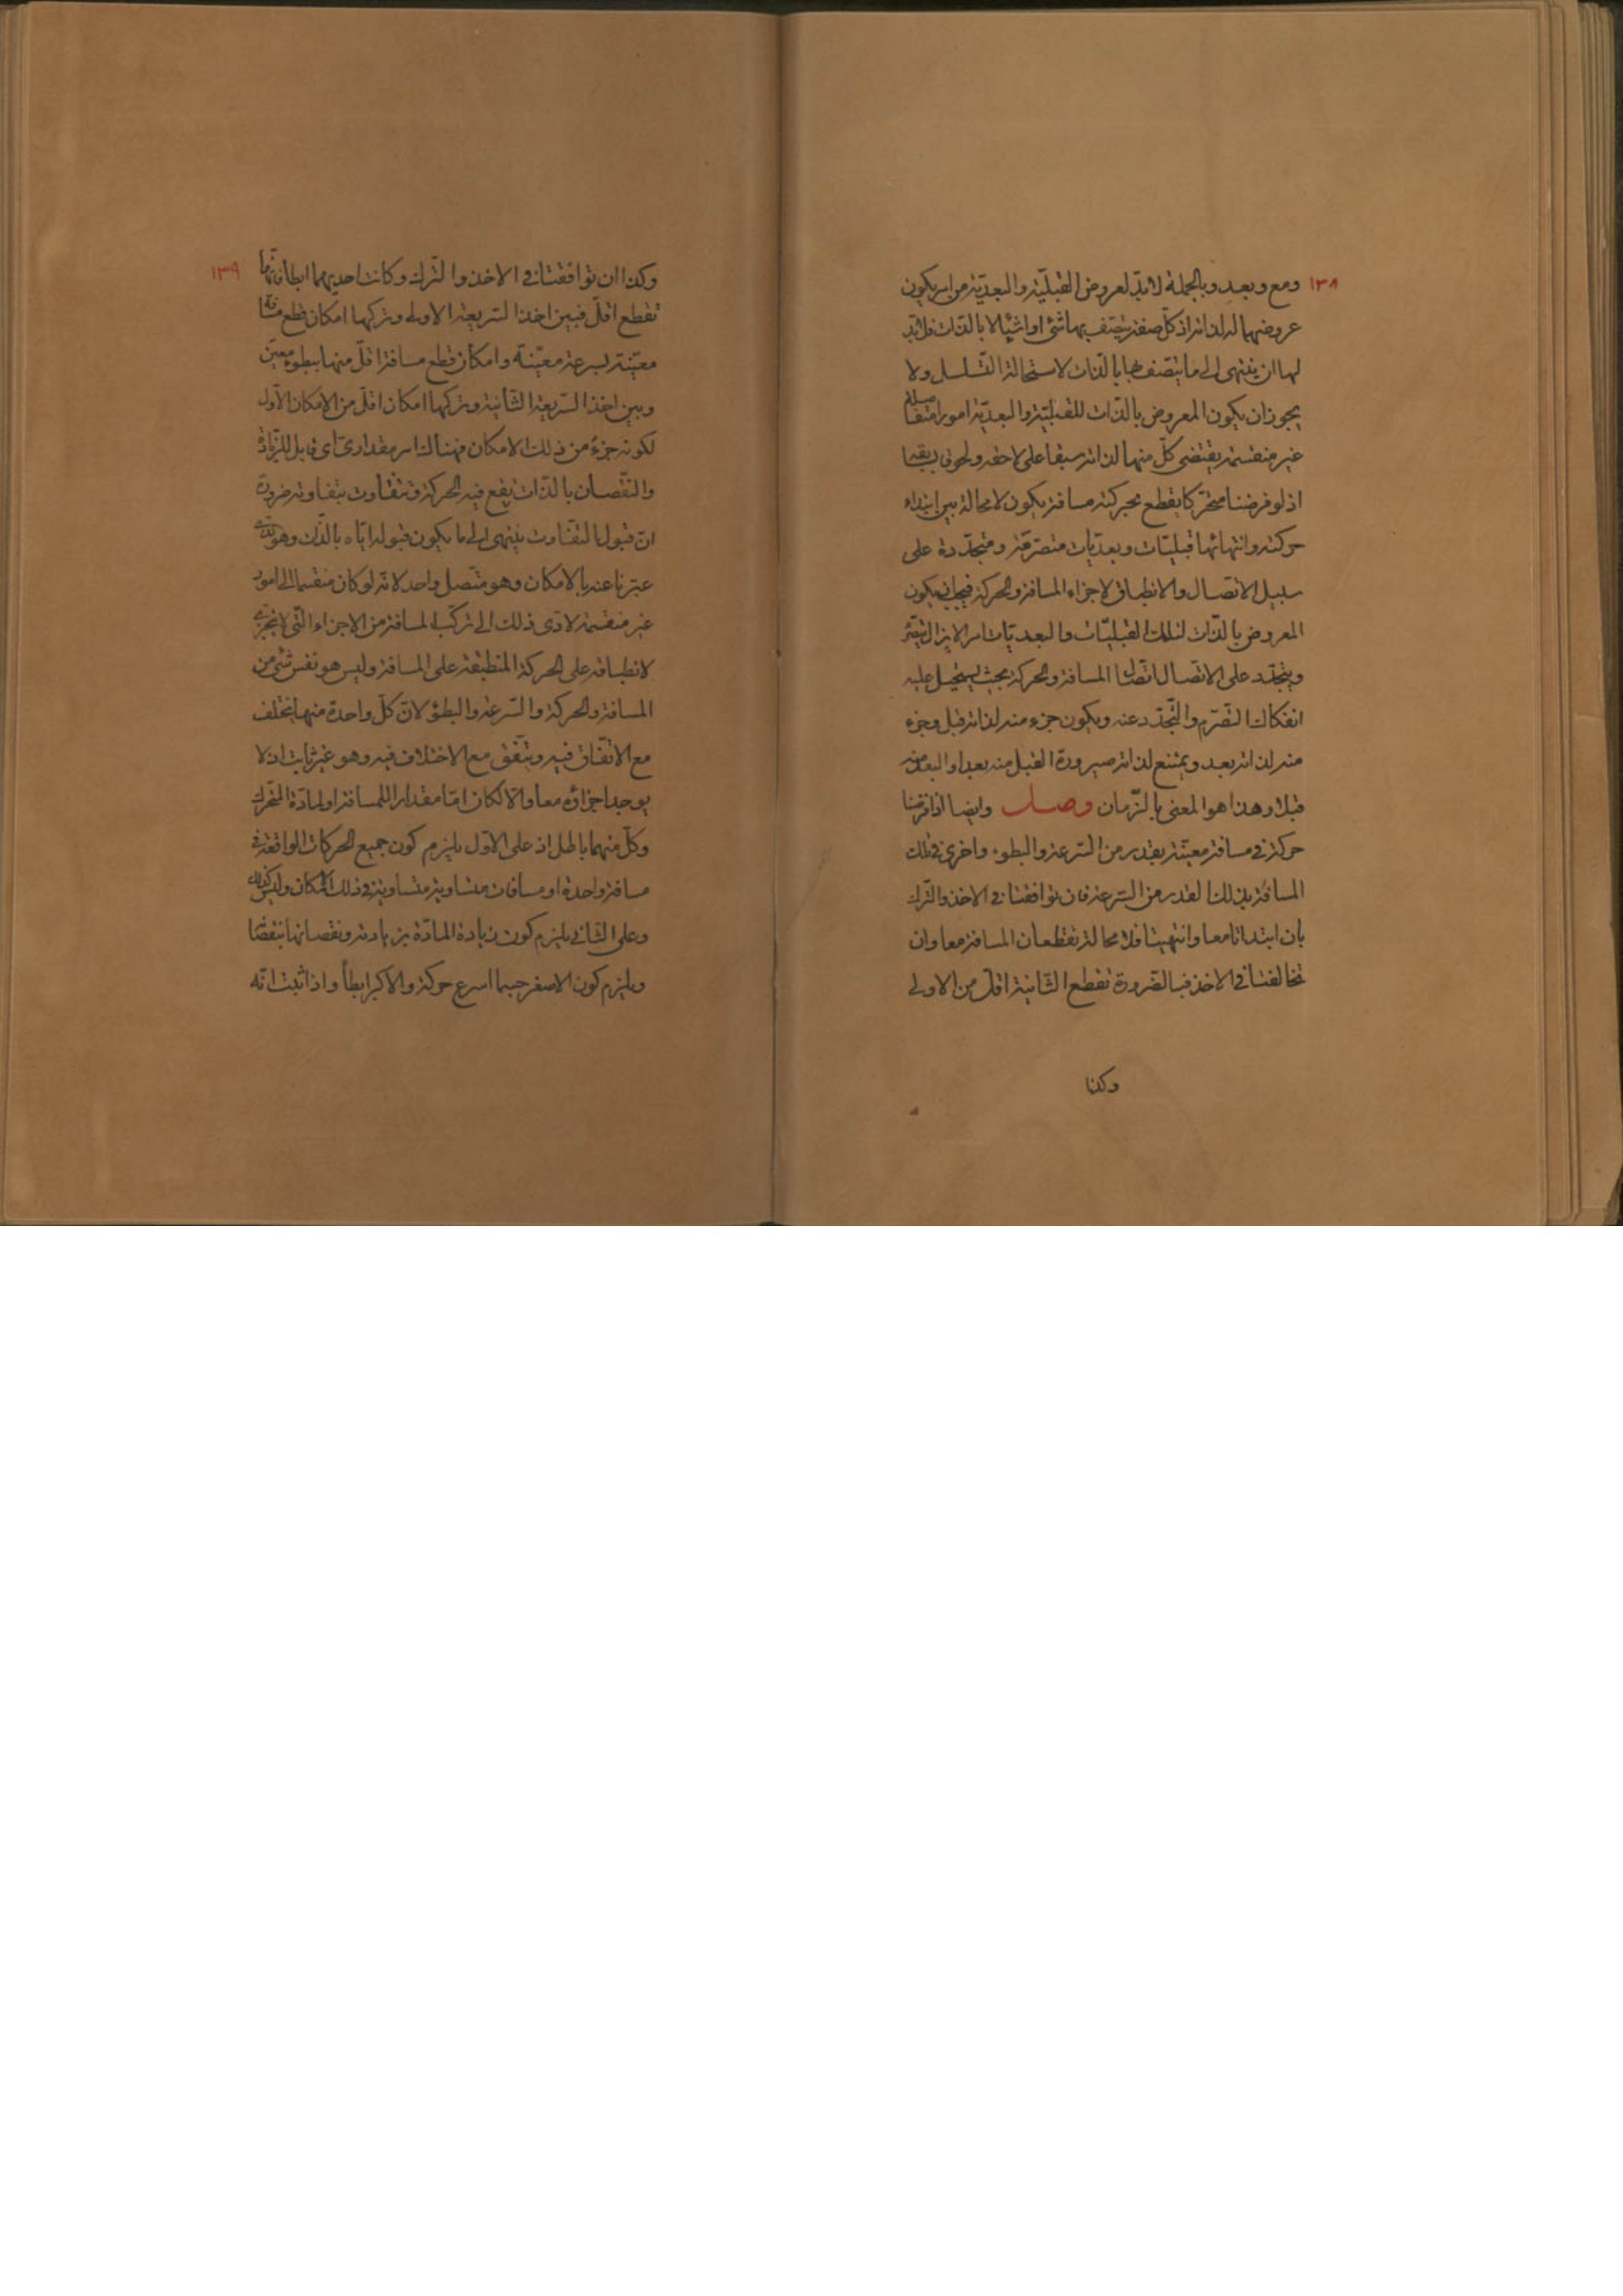 ١٣٨
ومع وبعد وبالجملة لا بد لعروض القبليّة والبعديّة من امر يكون
عروضهما له لذاته اذ كلّ صفة يتصف بها شئ او اشياء لا بالذّات فلا بدّ
لها ان ينتهى الى ما يتّصف بها بالذّات لاستحالة التّسلسل ولا
يجوز ان يكون المعروض بالذّات للقبليّة والبعديّة امورا متفاصلة
غير منقسمة يقتضى كلّ منها لذاته سبقا على لاحقه ولحوقا بسابقه
اذ لو فرضنا متحرّكا يقطع بحركته مسافة يكون لا محالة بين ابتداء
حركته وانتهائها قبليّات وبعديّات متصرّمة ومتجدّدة على
سبيل الاتّصال والانطباق لاجزاء المسافة والحركة فيجب ان يكون
المعروض بالذّات لتلك القبليّات والبعديّات امر لا يزال يتصرّم
ويتجدّد على الاتّصال اتّصال المسافة والحركة بحيث يستحيل عليه
انفكاك التّصرّم والتّجدّد عنه ويكون جزء منه لذاته قبل وجزء
منه لذاته بعد ويمتنع لذاته صيرورة القبل منه بعدا والبعد منه
قبلا وهذا هو المعنى بالزّمان وصل وايضا اذا فرضنا
حركة فى مسافة معيّنة بقدر من السّرعة والبطوء واخرى فى تلك
المسافة بذلك القدر من السّرعة فان توافقتا فى الاخذ والتّرك
بان ابتدأتا معا وانتهيتا فلا محالة تقطعان المسافة معا وان
تخالفتا فى الاخذ فبالضّرورة تقطع الثّانية اقلّ من الاولى
وكذا
١٣٩
وكذا ان توافقتا فى الاخذ والتّرك وكانت احديهما ابطأ فانّها
تقطع اقلّ فبين اخذ السّريعة الاولى وتركها امكان قطع مسافة
معيّنة بسرعة معيّنة وامكان قطع مسافة اقلّ منها ببطوء معيّن
وبين اخذ السّريعة الثّانية وتركها امكان اقلّ من الامكان الاوّل
لكونه جزء من ذلك الامكان فهناك امر مقدارىّ اى قابل للزّيادة
والنّقصان بالذّات يقع فيه الحركة وتتفاوت بتفاوته ضرورة
انّ قبول التّفاوت ينتهى الى ما يكون قبوله ايّاه بالذّات وهو الّذى
عبّرنا عنه بالامكان وهو متّصل واحد لانّه لو كان منقسما الى امور
غير منقسمة لادّى ذلك الى تركّب المسافة من الاجزاء الّتى لا تتجزّى
لانطباقه على الحركة المنطبقة على المسافة وليس هو نفس شئ من
المسافة والحركة والسّرعة والبطؤ لانّ كلّ واحدة منها تختلف
مع الاتّفاق فيه ويتّفق مع الاختلاف فيه وهو غير ثابت اذ لا
يوجد اجزاؤه معا والّا لكان امّا مقدارا للمسافة او لمادّة المتحرّك
وكلّ منهما باطل اذ على الاوّل يلزم كون جميع الحركات الواقعة فى
مسافة واحدة او مسافات متساوية متساوية فى ذلك الامكان وليس كذلك
وعلى الثّانى يلزم كون زيادة المادّة بزيادته ونقصانها بنقصانه
ويلزم كون الاصغر جسما اسرع حركة والاكبر ابطأ واذا ثبت انّه